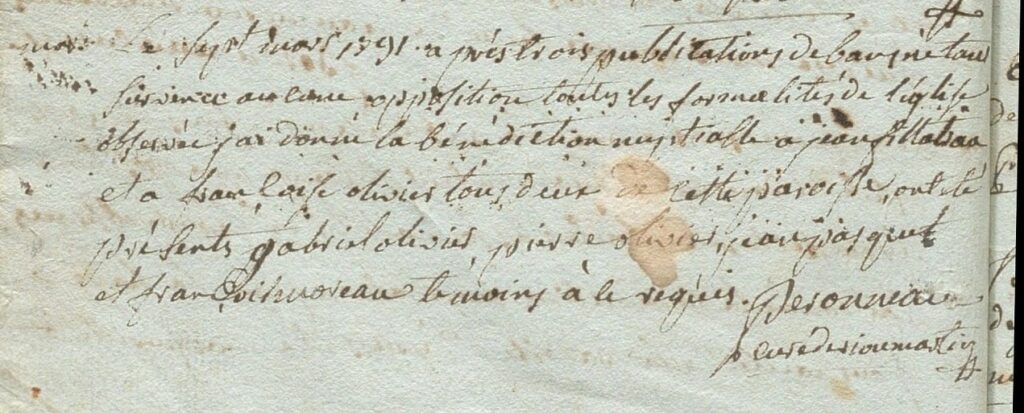 Le sept mars 1791 après trois publications de bans ne tant
survenu aucune opposition toutes les formalités de l'église
observée j'ai donné la bénédiction nuptialle a jean
et a françoise olivier tous deux de cette paroisse, ont été
présents gabriel olivier, pierre olivier, jean pasquet
et françois moreau témoins à le requis. Peronneau
curé de rioumartin